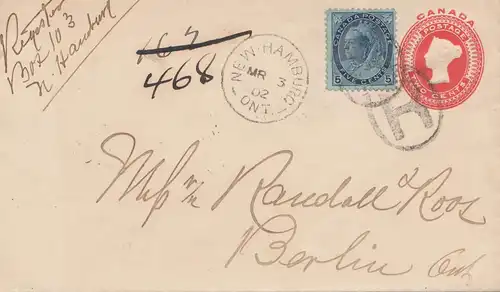 Register
Box 103
N. Hamburg
167
468
NEW-HAMBURG
MR 3
02
ONT.
CANADA POSTAGE
5 FIVE CENTS 5
CANADA
POSTAGE
TWO CENTS
R
Randall & Roos
Berlin Ont